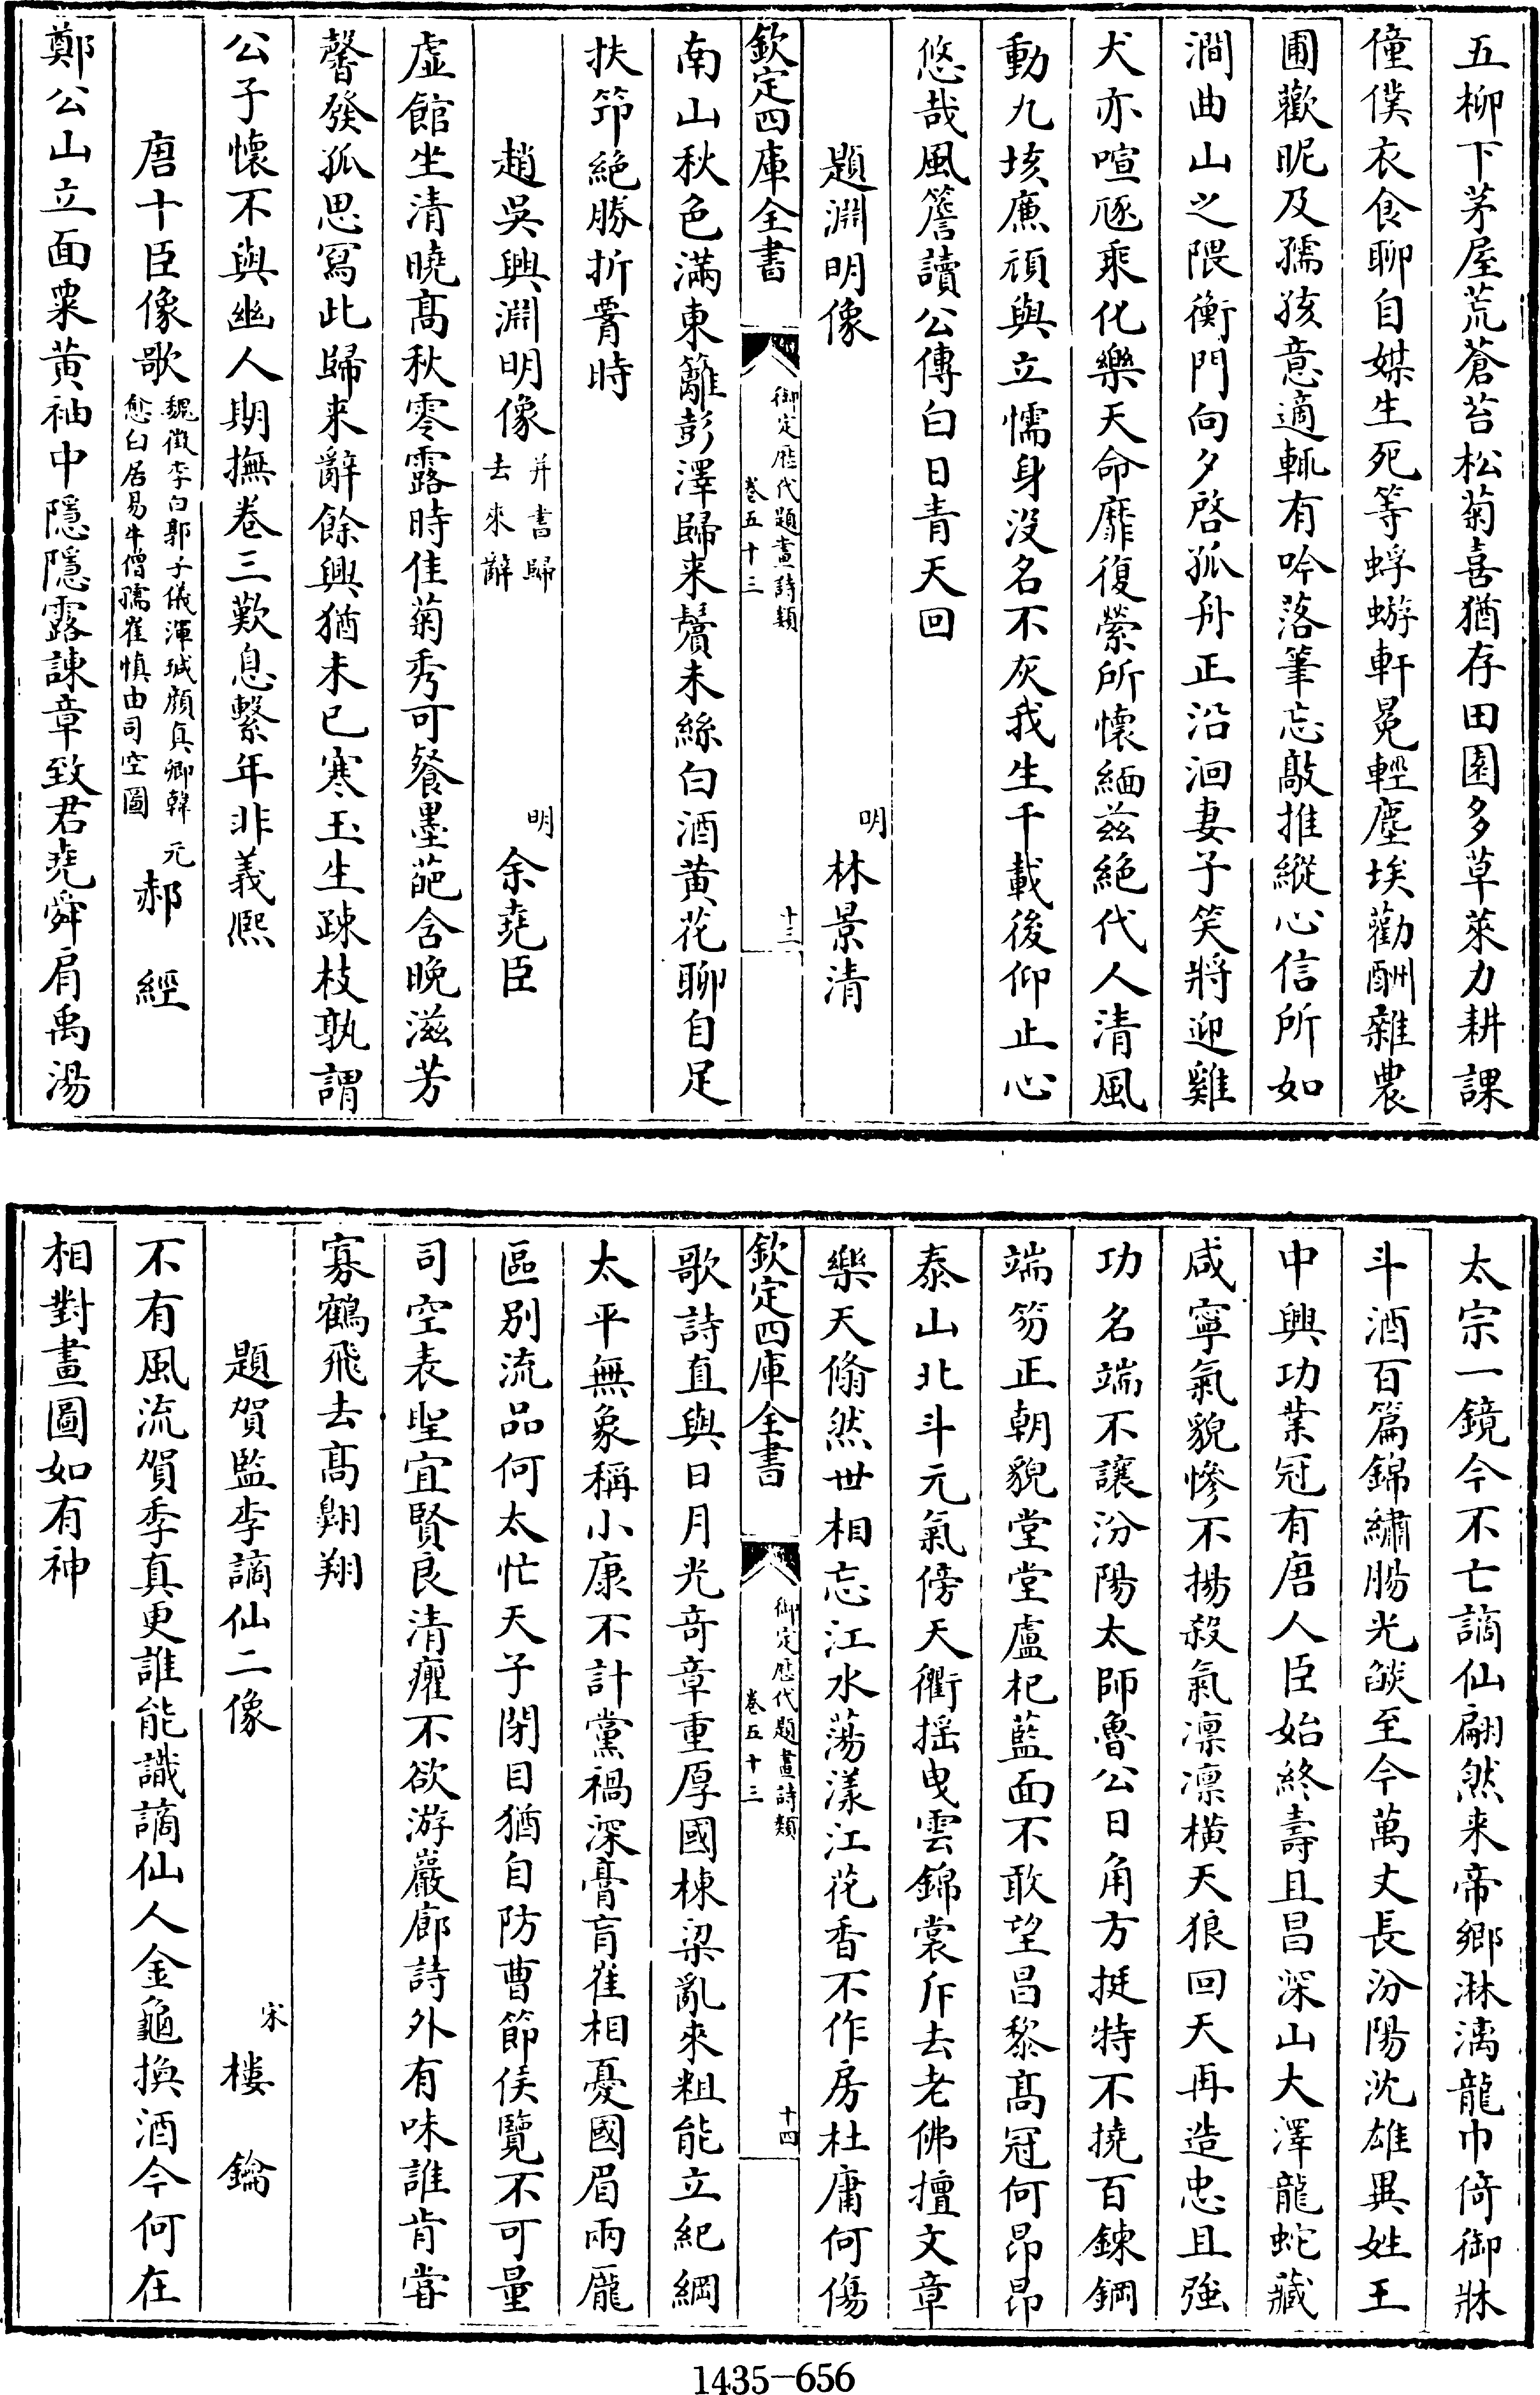 五柳下茅屋荒蒼苔松菊喜猶存田園多草萊力耕課
僮僕衣食聊自媒生死等蜉蝣軒冕輕塵埃勸酬雜農
圃歡昵及孺孩意適輒有吟落筆忘敲推縱心信所如
澗曲山之隈衡門向夕啓孤舟正沿洄妻子笑將迎雞
犬亦喧豗乘化樂天命靡復縈所懷緬兹絶代人清風
動九垓廉頑與立懦身没名不灰我生千載後仰止心
悠哉風簷讀公傳白日青天回
題淵明像
明
林景清
欽定四庫全書
御定歴代題畫詩類
卷五十三
十三
南山秋色滿東籬彭澤歸来鬢未絲白酒黄花聊自足
扶笻絶勝折䯒時
趙吳興淵明像
并書歸
去來辭
明
余堯臣
虚館坐清曉髙秋零露時佳菊秀可餐墨葩含晩滋芳
馨發孤思冩此歸来辭餘興猶未已寒玉生疎枝孰謂
公子懷不與幽人期撫卷三歎息繫年非義熙
唐十臣像歌
魏徴李白郭子儀渾瑊顔真卿韓
愈白居易牛僧孺崔慎由司空圖
元
郝經
鄭公山立面粟黄袖中隠隠露諫章致君堯舜肩禹湯
太宗一鏡今不亡謫仙翩然来帝鄉淋漓龍巾倚御牀
斗酒百篇錦繡腸光燄至今萬丈長汾陽沈雄異姓王
中興功業冠有唐人臣始終壽且昌深山大澤龍蛇藏
咸寧氣貌惨不揚殺氣凛凛横天狼回天再造忠且強
功名端不讓汾陽太師魯公日角方挺特不撓百鍊鋼
端笏正朝貌堂堂盧杞藍面不敢望昌黎髙冠何昂昂
泰山北斗元氣傍天衢揺曳雲錦裳斥去老佛擅文章
樂天翛然世相忘江水蕩漾江花香不作房杜庸何傷
欽定四庫全書
御定歴代題畫詩類
卷五十三
十四
歌詩直與日月光竒章重厚國棟梁亂來粗能立紀綱
太平無象稱小康不計黨禍深膏肓崔相憂國眉兩厖
區别流品何太忙天子閉目猶自防曹節侯覽不可量
司空表聖宜賢良清癯不欲游巖廊詩外有味誰肯甞
寡鶴飛去髙翺翔
題賀監李謫仙二像
宋
樓鑰
不有風流賀季真更誰能識謫仙人金龜換酒今何在
相對畫圖如有神
1435-656